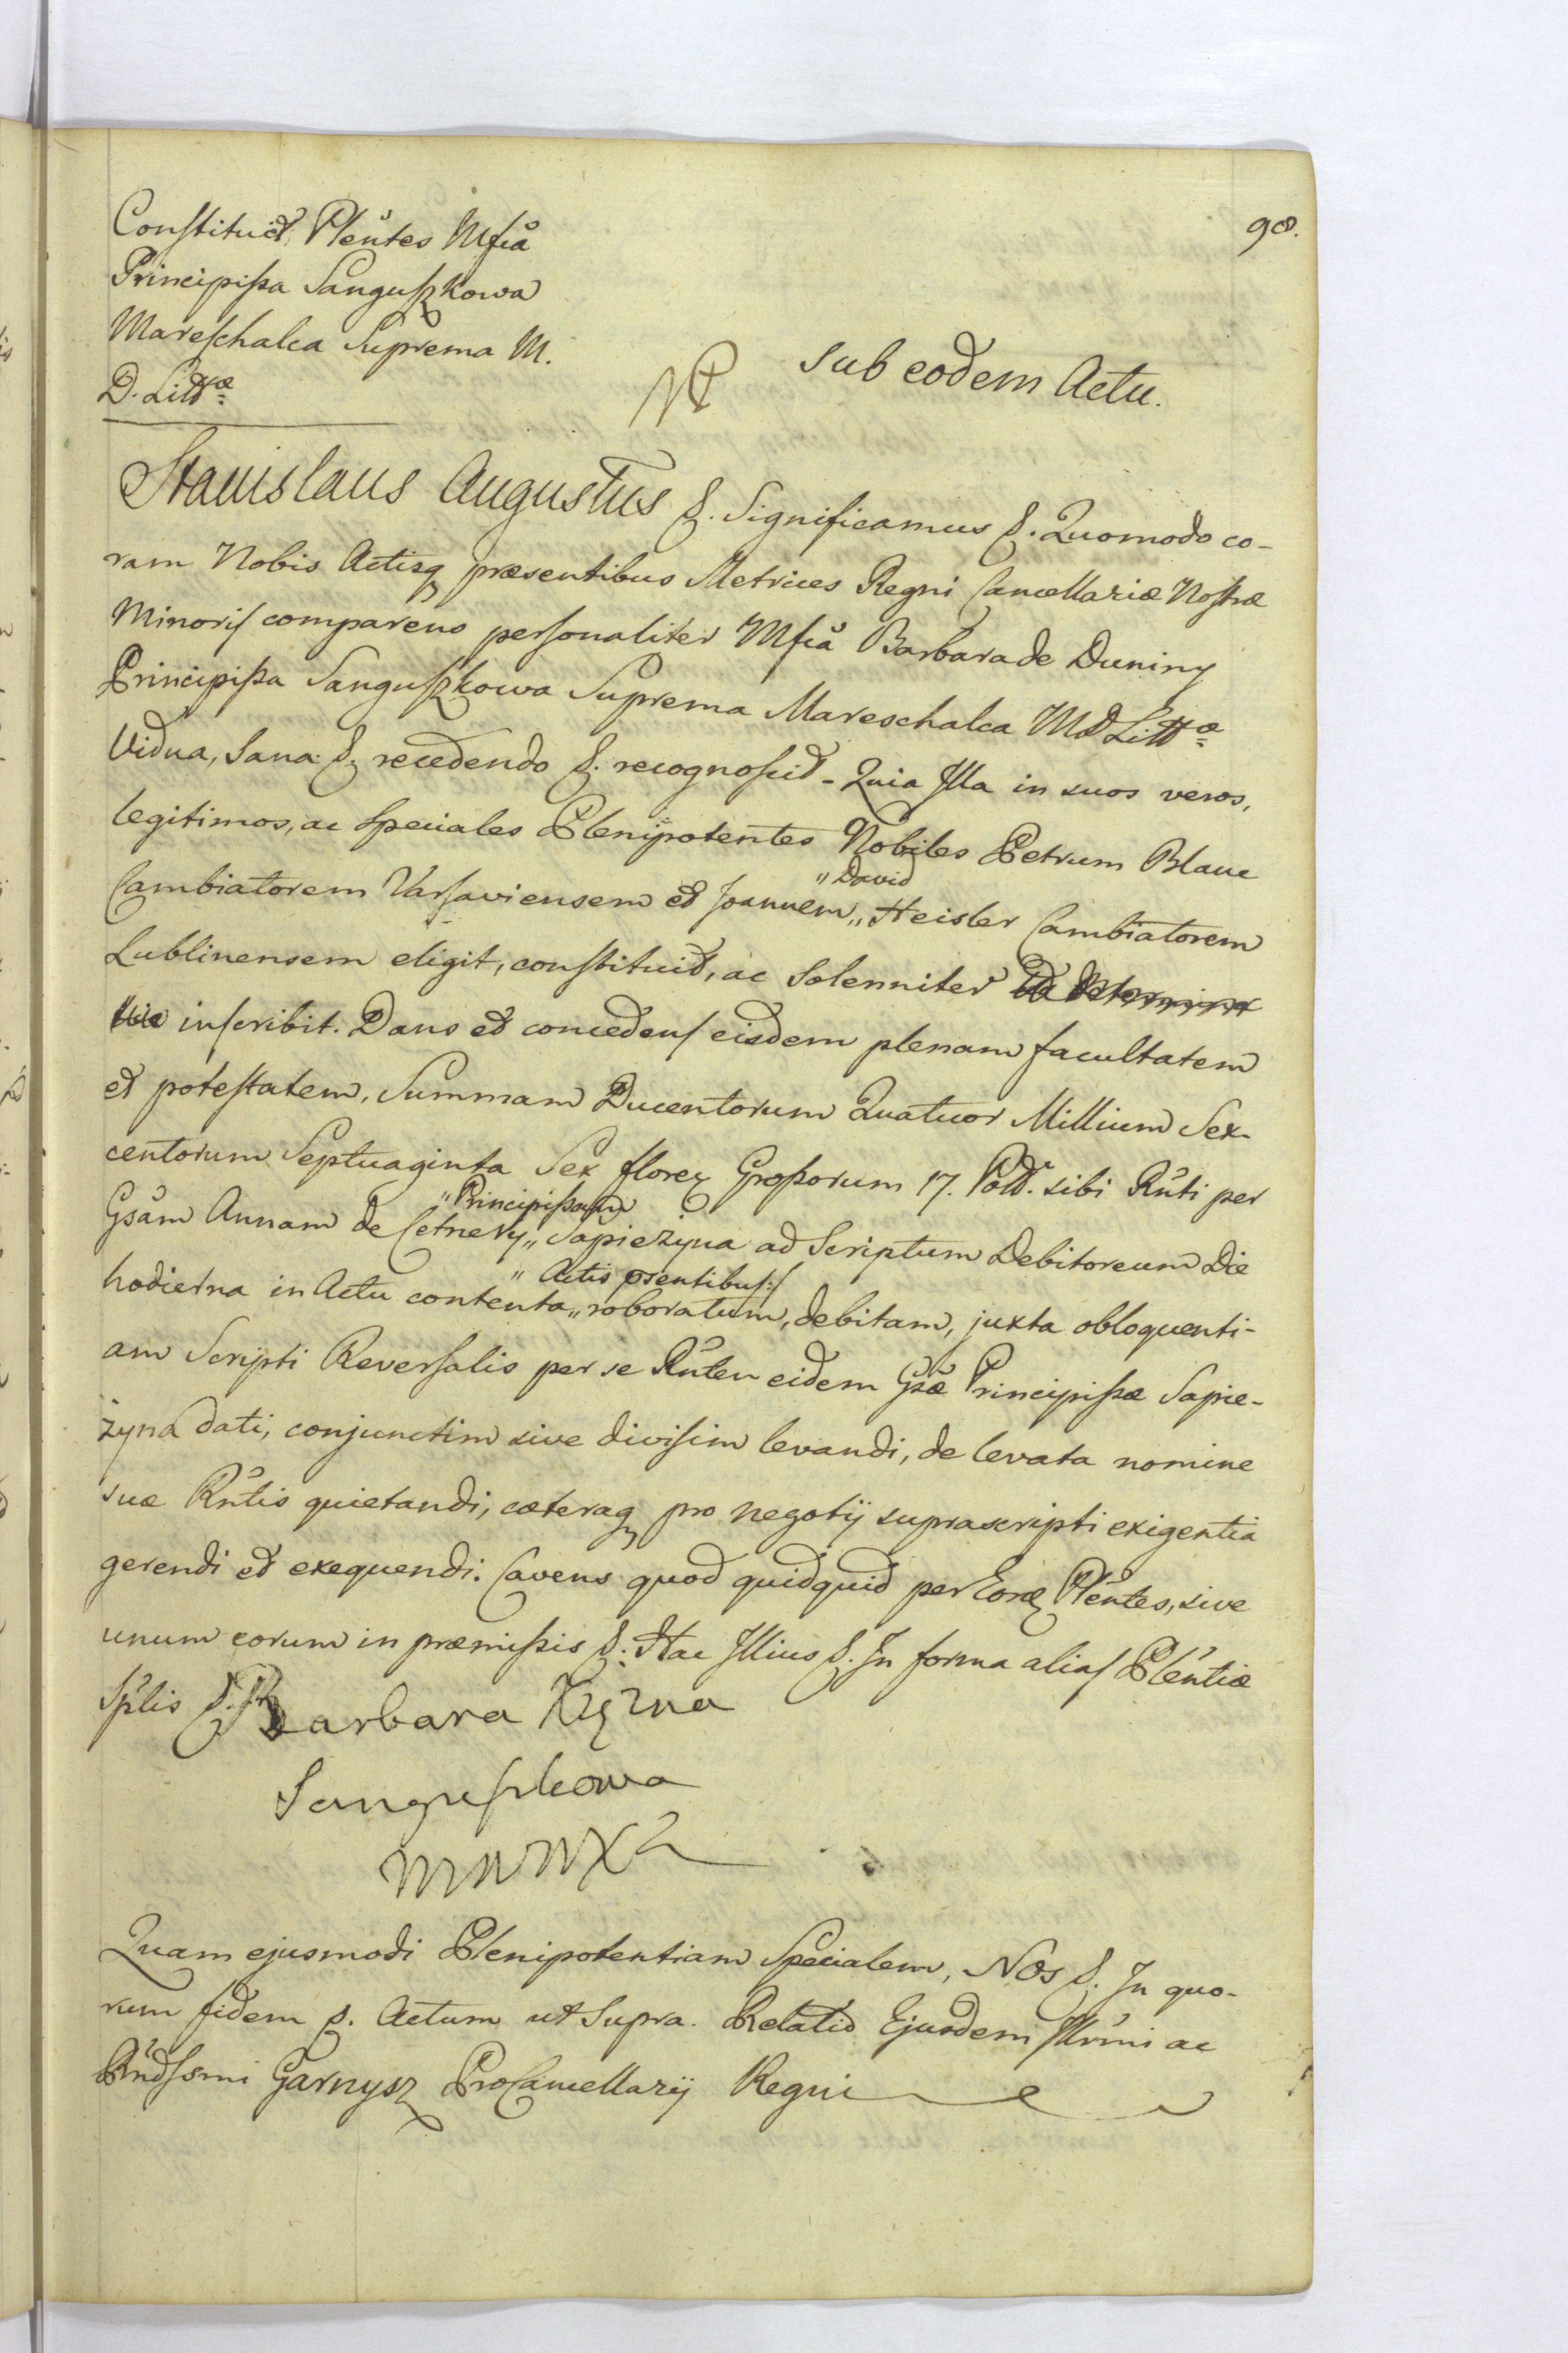 98.
Constituit Plentes Mfca
Principissa Sanguszkowa
Mareschalca Suprema M.
D. Littæ
sub eodem Actu.
Stanislaus Augustus &. Significamus &. Quomodo co-
ram Nobis Actisq præsentibus Metrices Regni Cancellariæ Nostræ
Minoris comparens personaliter Mfca Barbara de Duniny
Principissa Sanguszkowa Suprema Mareschalca MD Littæ
Vidua, Sana &. recedendo &. recognoscit - Quia Illa in suos veros,
legitimos, ac speciales Plenipotentes Nobiles Petrum Blanc
Cambiatorem Varsaviensem et Joannem „ Heisler Cambiatorem
„ David
Lublinensem eligit, constituit, ac Solenniter
inscribit. Dans et concedens eisdem plenam facultatem
et potestatem, Summam Ducentorum Quatuor Millium Sex-
centorum Septuaginta Sex floreʒ Grossorum 17. Pold. sibi Rnti per
Gsam Annam de Cetnery „ Sapieżyna ad Scriptum Debitoreum Die
„ Principissam
hodierna in Actu contenta „ roboratum, debitam, juxta obloquenti-
„ Actis psentibus
am Scripti Reversalis per se Rnten eidem Gsæ Principissæ Sapie-
żyna dati, conjunctim sive divisim levandi, de levata nomine
suæ Rntis quietandi, cæteraq pro negotij suprascripti exigentia
gerendi et exequendi. Cavens quod quidquid per Eosdʒ Plentes, sive
unum eorum in præmissis &. Hac Illius &. In forma alias Plentiæ
Splis &.
Barbara Xzna
Sanguszkowa
MWWXL
Quam ejusmodi Plenipotentiam Specialem, Nos &. In quo-
rum fidem &. Actum ut Supra. Relatio Ejusdem Illrmi ac
Rndssmi Garnysz ProCancellarij Regni